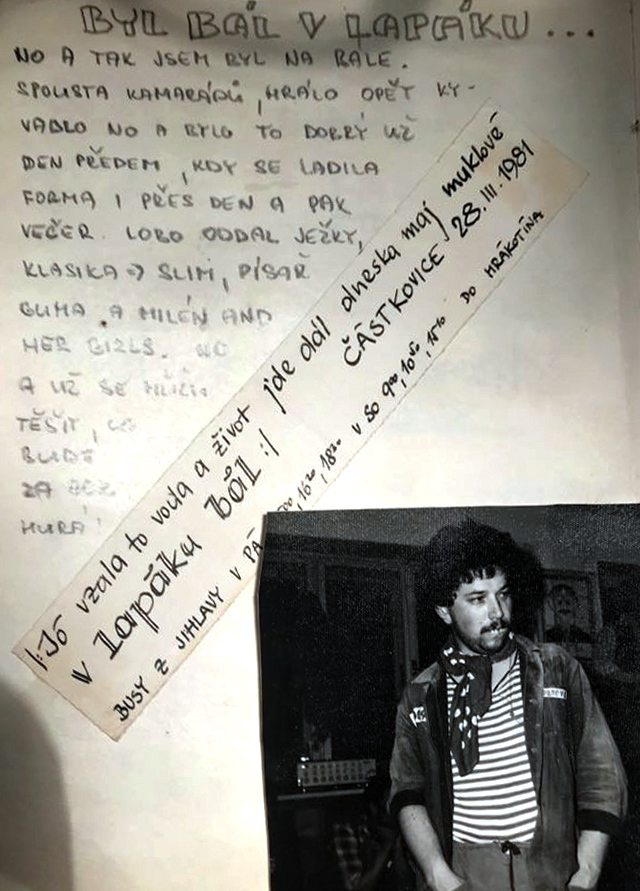 BYL BÁL V LAPÁKU...
NO A TAK JSEM BYL NA BALE.
SPOUSTA KAMARÁDŮ, HRÁLO OPĚT KY-
VADLO NO A BYLO TO DOBRÝ UŽ
DEN PŘEDEM, KDY SE LADILA
FORMA I PŘES DEN A PAK
VEČER. LOBO ODDAL JEŽKY,
KLASIKA => SLIM, PÍSAŘ
GUMA A MILÉN AND
HER GIRLS. NO
A UŽ SE MŮŽU
TĚŠIT, CO
BUDE
ZA ROK
HURÁ!
|:Jó vzala to voda a život jde dál dneska maj muklové
v lapáku bál :|
ČÁSTKOVICE 28.III.1981
BUSY Z JIHLAVY V PÁ 16²⁰, 18²⁰ V SO 9⁰⁰, 10⁵⁰, 15¹⁰ DO MRÁKOTÍNA